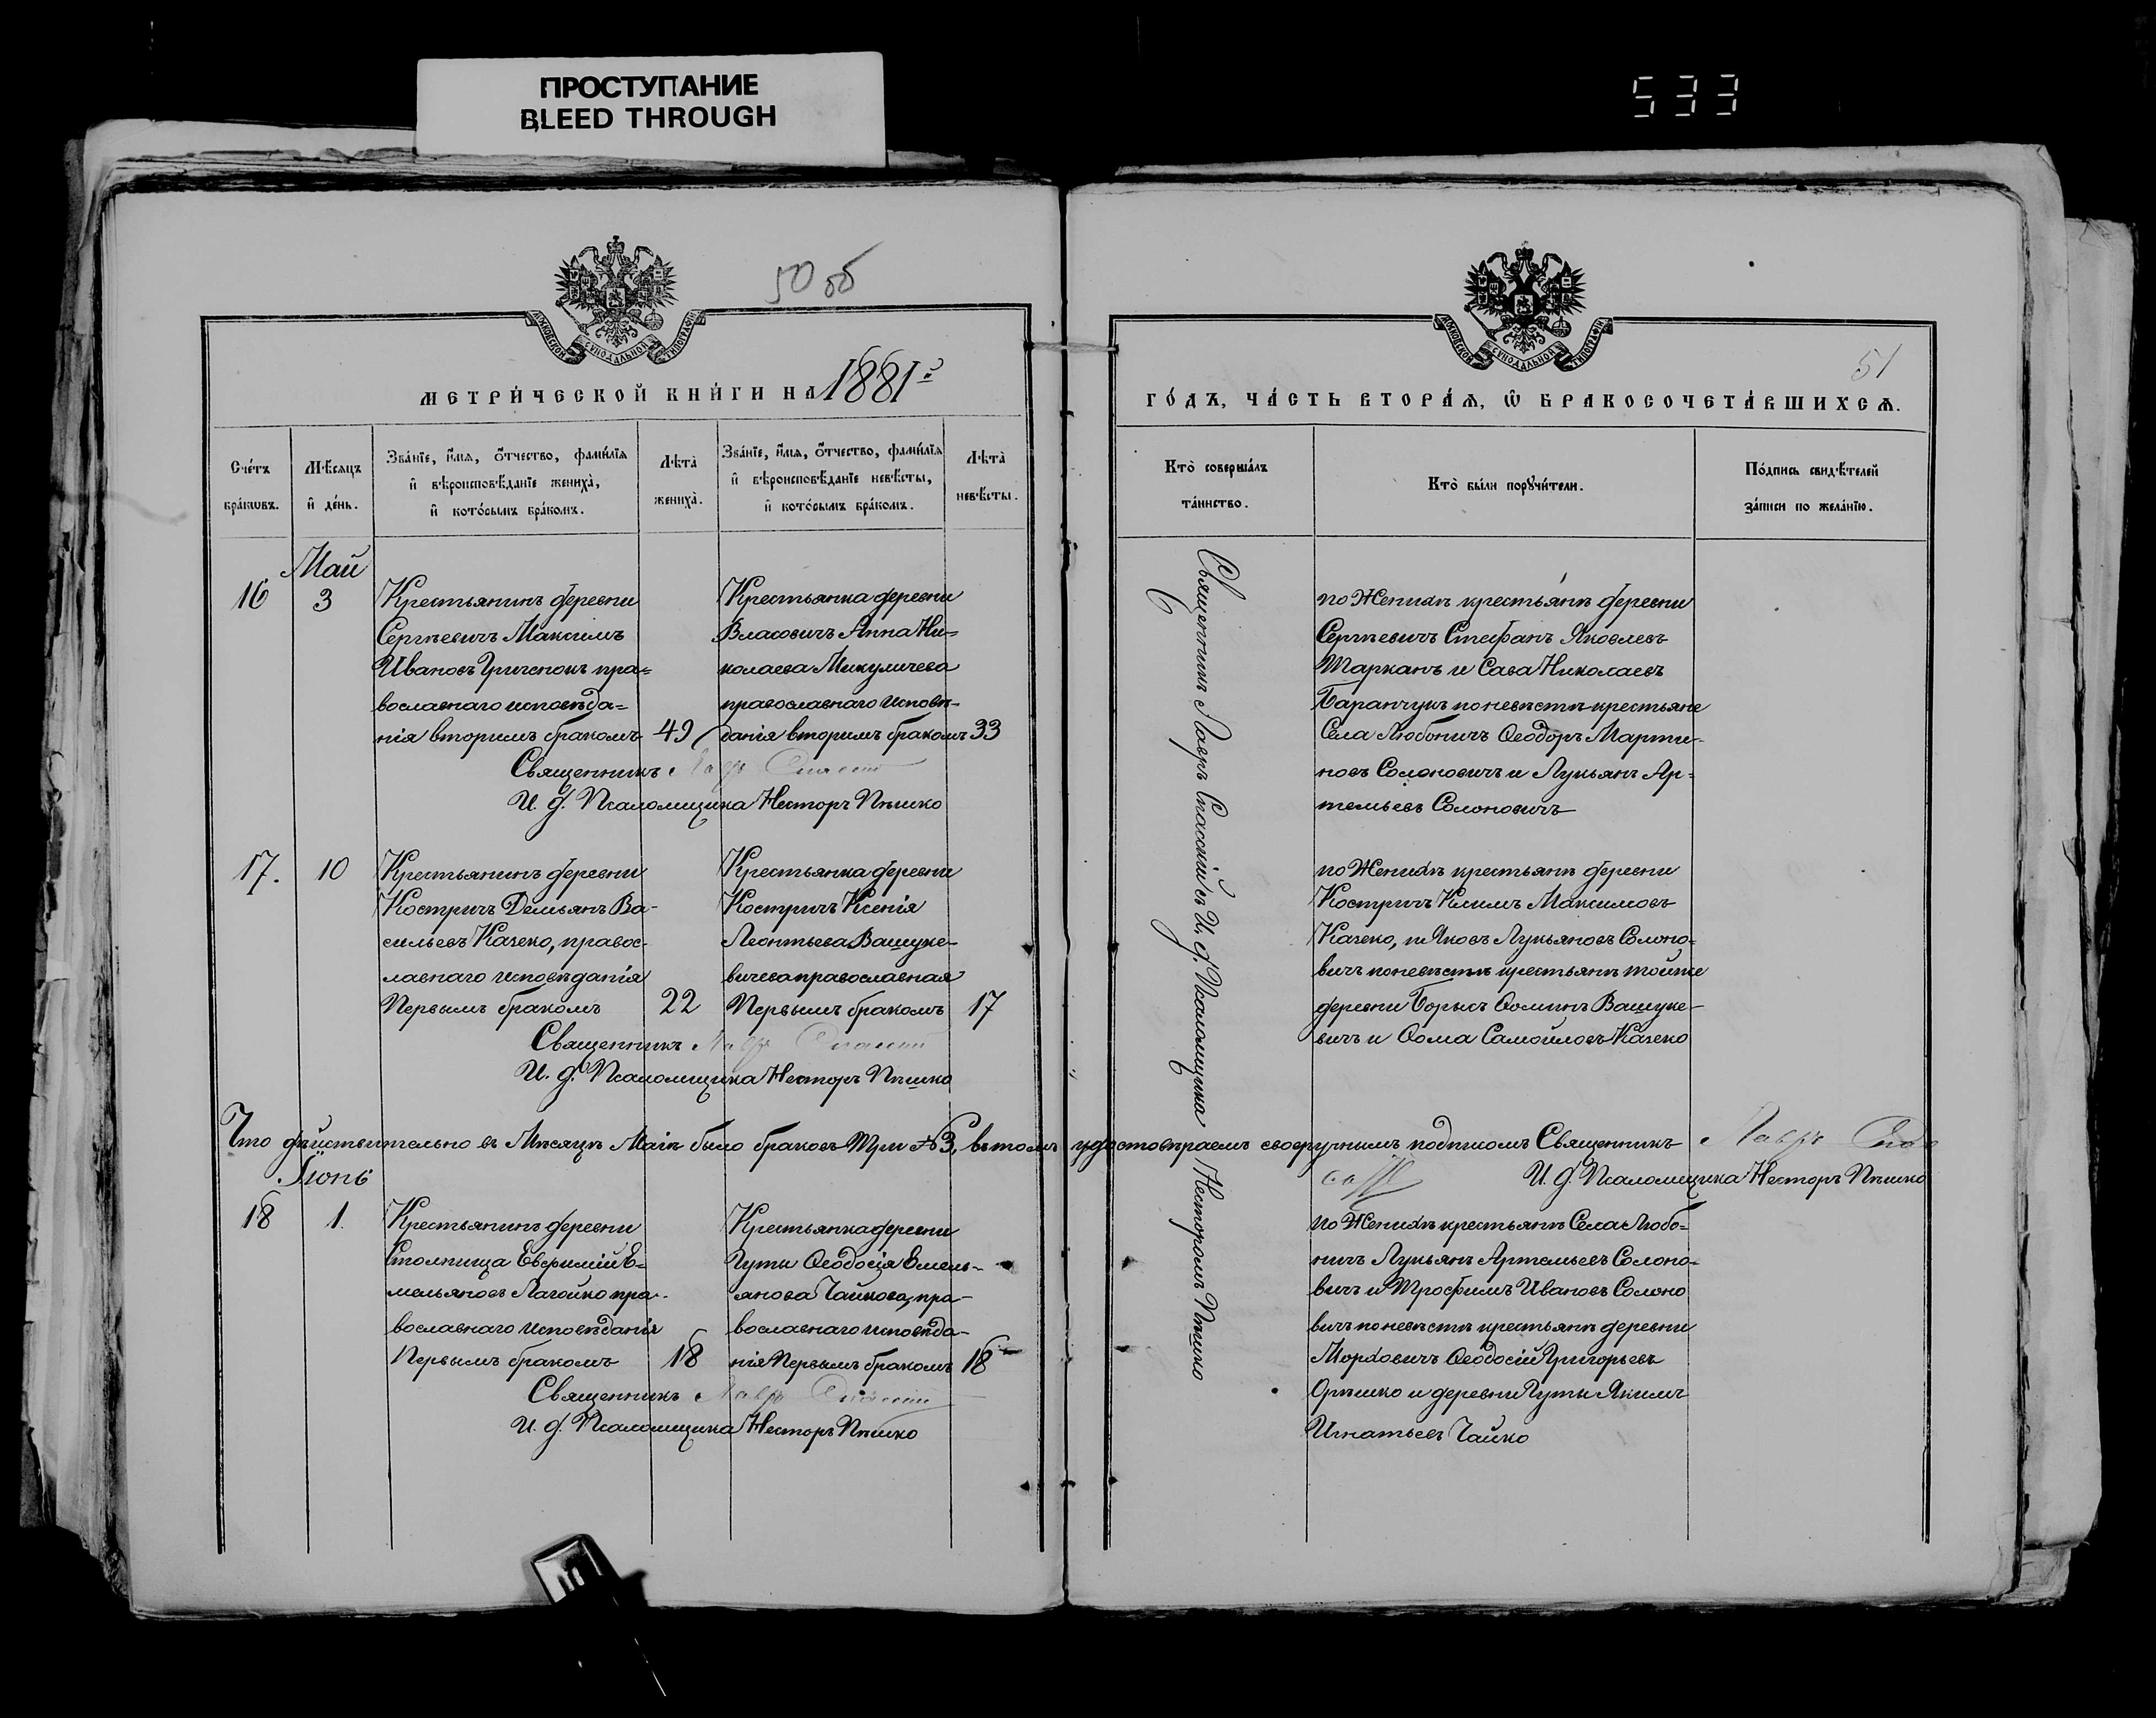 ПРОСТУПАНИЕ
BLEED THROUGH
533
50 об
МОСКОВСКОЙ СѴНОДАЛЬНОЙ ТИПОГРАФІИ
МЕТРИ́ЧЕСКОЙ КНИ́ГИ НА 1881й
Сче́тъ бра́кωвъ.
Мѣ́сяцъ и҆ де́нь.
Зва́нїе, и҆́мѧ, ѻ҆́тчество, фами́лїѧ
и҆ вѣроисповѣ́данїе жениха̀,
и҆ кото́рымъ бра́комъ.
Лѣта̀ жениха̀.
Зва́нїе, и҆́мѧ, ѻ҆́тчество, фами́лїѧ
и҆ вѣроисповѣ́данїе невѣ́сты,
и҆ кото́рымъ бра́комъ.
Лѣта̀ невѣ́сты.
Май
16
3
Крестьянинъ деревни
Сергѣевичъ Максимъ
Ивановъ Григенокъ пра=
вославнаго исповѣда=
нія вторимъ бракомъ
49
Крестьянка деревни
Власовичъ Анна Ни=
колаева Микуличева
православнаго исповѣ-
данія вторимъ бракомъ
33
Священникъ Лавръ
И. д. Псаломщика Несторъ Пѣшко
17.
10
Крестьянинъ деревни
Костричъ Демьянъ Ва-
сильевъ Качеко, правос-
лавнаго исповѣданія
Первымъ бракомъ
22
Крестьянка деревни
Костричъ Ксенія
Леонтьева Вашуке-
вичева православная
Первымъ бракомъ
17
Священникъ Лавръ
И. д. Псаломщика Несторъ Пѣшко
Что дѣйствительно въ Мѣсяцѣ Маіѣ было браковъ Три №3, въ томъ удостовѣраемъ своеручнымъ подписомъ Священникъ Лавръ
И. д. Псаломщика Несторъ Пѣшко
Іюнь
18
1.
Крестьянинъ деревни
Столпища Евфимій Е=
мельяновъ Лагойко пра-
вославнаго исповѣданія
Первымъ бракомъ
18
Крестьянка деревни
Гуты Ѳеодосія Емель-
янова Чайкова, пра-
вославнаго исповѣда-
нія Первымъ бракомъ
18
Священникъ Лавръ
И. д. Псаломщика Несторъ Пѣшко
МОСКОВСКОЙ СѴНОДАЛЬНОЙ ТИПОГРАФІИ
51
ГО́ДЪ, ЧА́СТЬ ВТОРА́Ѧ, Ѽ БРАКОСОЧЕТА́ВШИХСѦ.
Кто̀ соверша́лъ
та́инство.
Кто̀ бы́ли порꙋчи́тели.
По́дпись свидѣ́телей
за́писи по жела́нїю.
Священникъ Лавръ Спаскій съ И. д. Псаломщика Несторомъ Пѣшко
по Женихѣ крестьянѣ деревни
Сергѣевичъ Стефанъ Яковлевъ
Тарканъ и Сава Николаевъ
Баранчукъ по невѣстѣ крестьяне
Села Любоничъ Ѳеодоръ Марти-
новъ Солоновичъ и Лукьянъ Ар=
темьевъ Солоновичъ
по Женихѣ крестьянѣ деревни
Костричъ Климъ Максимовъ
Качеко, и Яковъ Лукьяновъ Солоно=
вичъ по невѣстѣ крестьянѣ тойже
деревни Борисъ Ѳоминъ Вашуке-
вичъ и Ѳома Самойловъ Качеко
по Женихѣ крестьянѣ Села Любо=
ничъ Лукьянъ Артемьевъ Солоно=
вичъ и Трофимъ Ивановъ Солоно
вичъ по невѣстѣ крестьянѣ деревни
Морховичъ Ѳеодосій Григорьевъ
Орѣшко и деревни Гуты Якимъ
Игнатьевъ Чайко